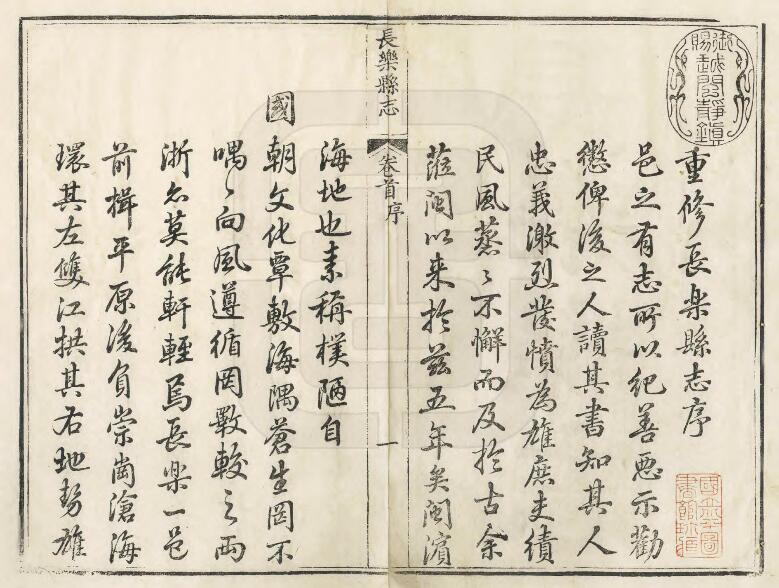 重修長樂縣志序
邑之有志所以紀善惡示勸
懲俾後之人讀其書知其人
忠義激烈發憤為雄庶吏績
民風蒸〻不懈而及於古余
蒞閩以来於茲五年矣閩濵
長樂縣志
卷首序
一
海地也素稱樸陋自
國朝文化覃敷海隅蒼生罔不
喁〻向風遵循罔斁較之兩
浙亦莫能軒輊焉長樂一邑
前揖平原後負崇崗滄海
環其左雙江拱其右地勢雄